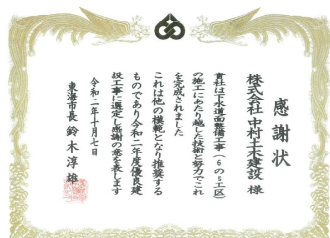 感謝状
株式会社中村土木建設 様
貴社は下水道面整備工事(6の5工区)
の施工にあたり優れた技術と努力でこれ
を完成されました
これは他の模範となり推奨する
ものであり令和二年度優良建
設工事に選定し感謝の意を表します
令和二年十月七日
東海市長 鈴木淳雄